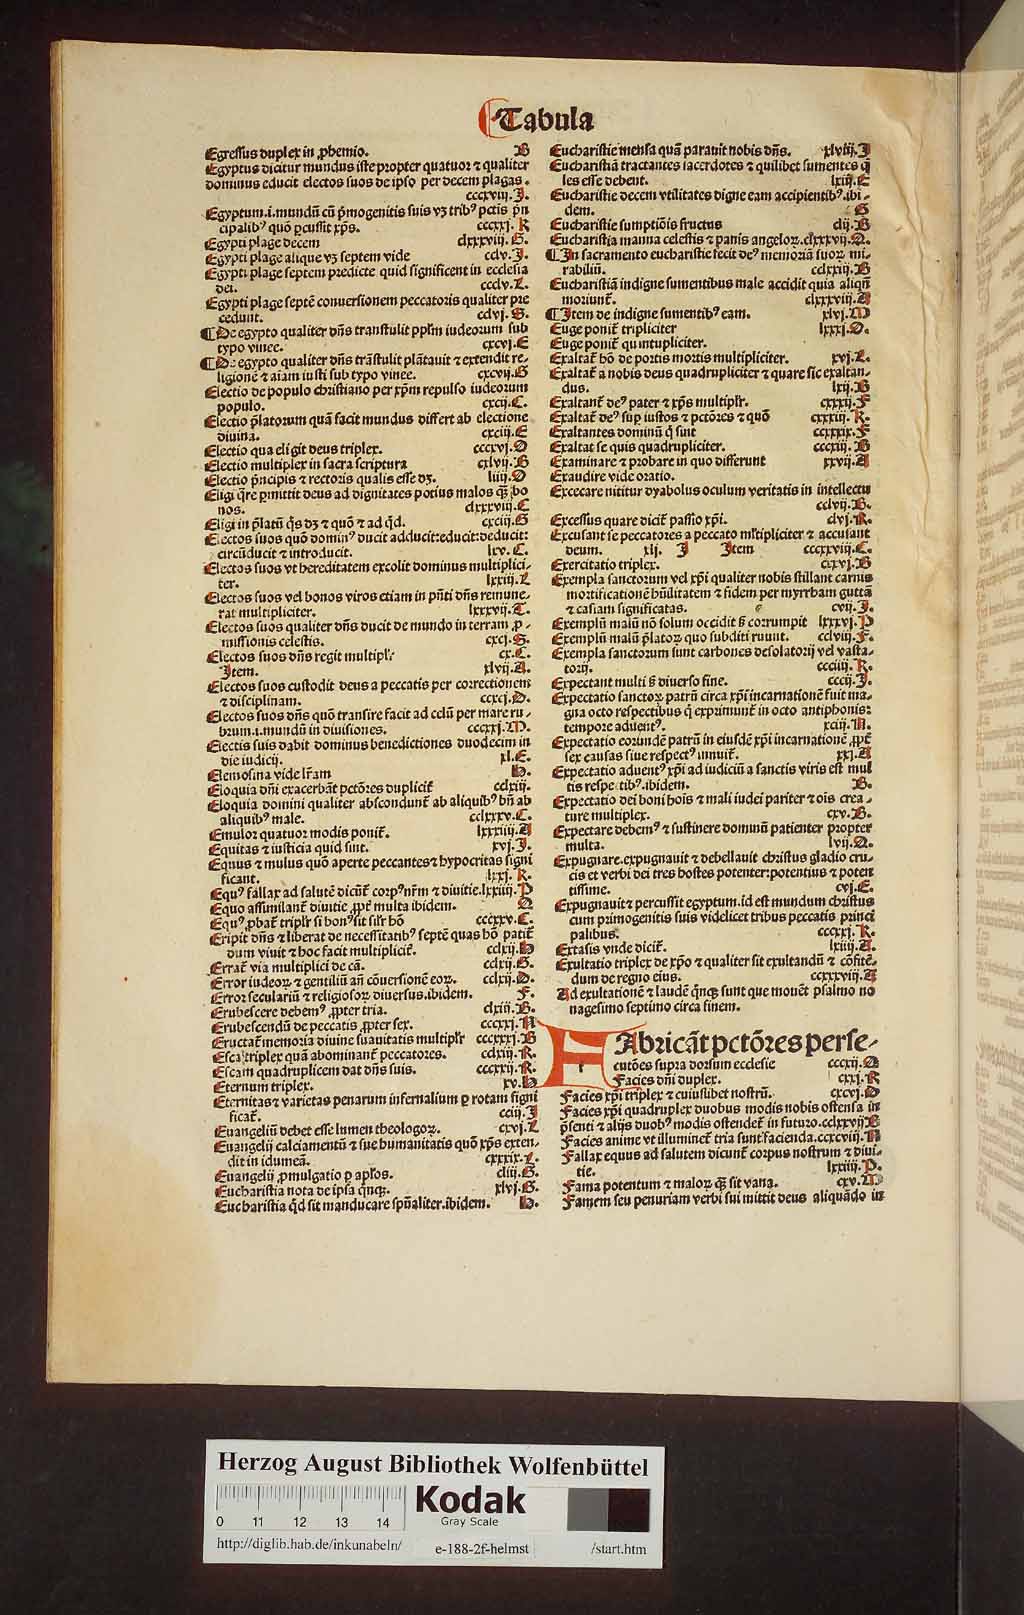 Tabula
Egressus duplex in ꝓhemio. B
Egyptus dicitur mundus iste propter quatuor ⁊ qualiter
dominus educit electos suos de ipso per decem plagas.
cccxviij. J.
Egyptum.i.mundū cū p̄mogenitis suis vꝫ tribꝰ pctis p̄n
cipalibꝰ quō ꝑcussit xp̄s. ccccxj. K
Egypti plage decem clxxxviij. G.
Egypti plage alique vꝫ septem vide cclv. J.
Egypti plage septem predicte quid significent in ecclesia
dei. ccclv. L.
Egypti plage septē conuersionem peccatoris qualiter pre
cedunt. cdvj. S.
¶ De egypto qualiter dn̄s transtulit pplm̄ iudeorum sub
typo vinee. cxcvj. E
¶ De egypto qualiter dn̄s trāstulit plātauit ⁊ extendit re-
ligionē ⁊ aīam iusti sub typo vinee. cxcvij. G
Electio de populo christiano per xp̄m repulso iudeorum
populo. cxcij. C.
Electio p̄latorum quā facit mundus differt ab electione
diuina. cxciij. E
Electio qua eligit deus triplex. cccxvj. D
Electio multiplex in sacra scriptura cxlvij. B
Electio p̄ncipis ⁊ rectoris qualis esse dꝫ. liiij. D
Eligi q̄re ꝑmittit deus ad dignitates potius malos q̄ꝫ bo
nos. clxxxviij. C
Eligi in p̄latū q̄s dꝫ ⁊ quō ⁊ ad q̄d. cxciij. G
Electos suos quō dominꝰ ducit adducit:educit:deducit:
circūducit ⁊ introducit. lxv. C.
Electos suos vt hereditatem excolit dominus multiplici-
ter. lxxiij. L
Electos suos vel bonos viros etiam in pn̄ti dn̄s remune-
rat multipliciter. lxxxvij. T.
Electos suos qualiter dn̄s ducit de mundo in terram ꝓ-
missionis celestis. cxcj. G.
Electos suos dn̄s regit multiplr̄ cx. C.
Item. xlvij. A.
Electos suos custodit deus a peccatis per correctionem
⁊ disciplinam. ccxcj. D.
Electos suos dn̄s quō transire facit ad celū per mare ru-
brum.i.mundū in diuisiones. ccccxj. M.
Electis suis dabit dominus benedictiones duodecim in
die iudicij. xl. E.
Elemosina vide lr̄am H.
Eloquia dn̄i exacerbāt pctōres duplicit̄ cclxiij.
Eloquia domini qualiter abscondunt̄ ab aliquibꝰ bn̄ ab
aliquibꝰ male. cclxxxv. C.
Emulor quatuor modis ponit̄. lxxxiiij. A
Equitas ⁊ iusticia quid sint. xvj. J.
Equus ⁊ mulus quō aperte peccantes ⁊ hypocritas signi
ficant. lxxj. K.
Equꝰ fallax ad salutē dicūt̄ corpꝰ nr̄m ⁊ diuitie.lxxiiij. P
Equo assimilant̄ diuitie ꝓpt̄ multa ibidem. Q
Equꝰ ꝓbat̄ triplr̄ si bonꝰ sit silr̄ hō ccccxv. C.
Eripit dn̄s ⁊ liberat de necessitatibꝰ septē quas hō patit̄
dum viuit ⁊ hoc facit multiplicit̄. cclxij. H
Errat̄ via multiplici de cā. cclxij. G.
Error iudeoꝝ ⁊ gentiliū an̄ cōuersionē eoꝝ. cclxij. D.
Error seculariū ⁊ religiosoꝝ diuersus.ibidem. F.
Erubescere debemꝰ ꝓpter tria. clxiij. B.
Erubescendū de peccatis ꝓpter sex. ccccxj. N
Eructat̄ memoria diuine suauitatis multiplr̄ ccccxxj. B
Esca triplex quā abominant̄ peccatores. cdxiij. R.
Escam quadruplicem dat dn̄s suis. ccccxij. R.
Eternum triplex. xv. H
Eternitas ⁊ varietas penarum infernalium ꝑ rotam signi
ficat̄. cciij. J
Euangeliū debet esse lumen theologoꝝ. cxvj. L
Euangelij calciamentū ⁊ sue humanitatis quō xp̄s exten-
dit in idumeā. cxxxix. L.
Euangelij ꝓmulgatio ꝑ apl̄os. cliij. G.
Eucharistia nota de ipsa q̄nqꝫ. xlvj. G.
Eucharistia q̄d sit manducare sp̄ualiter.ibidem. H.
Eucharistie mensa quā parauit nobis dn̄s. xlviij. J
Eucharistiā tractantes sacerdotes ⁊ quilibet sumentes q̄
les esse debent. lxiij. E
Eucharistie decem vtilitates digne eam accipientibꝰ.ibi-
dem. G
Eucharistie sumptiōis fructus clij. B
Eucharistia manna celestis ⁊ panis angeloꝝ.clxxxvij. Q.
¶ In sacramento eucharistie fecit deꝰ memoriā suoꝝ mi-
rabiliū. cclxxij. B
Eucharistiā indigne sumentibus male accidit quia aliqn̄
moriunt̄. clxxxviij. A
¶ Item de indigne sumentibꝰ eam. xlvj. M
Euge ponit̄ tripliciter lxxxj. D.
Euge ponit̄ quintupliciter.
Exaltat̄ hō de portis mortis multipliciter. xvj. L.
Exaltat̄ a nobis deus quadrupliciter ⁊ quare sic exaltan-
dus. lxij. B
Exaltant̄ deꝰ pater ⁊ xp̄s multiplr̄. ccccxj. F
Exaltat̄ deꝰ sup̄ iustos ⁊ pctōres ⁊ quō cxxxiij. K.
Exaltantes dominū q̄ sint ccxxxix. F
Exaltat se quis quadrupliciter. cccxij. B
Examinare ⁊ probare in quo differunt xxvij. A
Exaudire vide oratio.
Excecare nititur dyabolus oculum veritatis in intellectu
cclvij. B.
Excessus quare dicit̄ passio xp̄i. clvj. R.
Excusant se peccatores a peccato mĺtipliciter ⁊ accusant
deum. xlj. J Item ccccxviij. C.
Exercitatio triplex. cixvj. B
Exempla sanctorum vel xp̄i qualiter nobis stillant carnis
mortificationē hūilitatem ⁊ fidem per myrrham guttā
⁊ casiam significatas. cvij. J.
Exemplū malū nō solum occidit s̄ corrumpit lxxxvj. P
Exemplū malū p̄latoꝝ quo subditi ruunt. cclviij. F.
Exempla sanctorum sunt carbones desolatorij vel vasta-
torij. ccciij. K.
Expectant multi s̄ diuerso fine. cccij. J.
Expectatio sanctoꝝ patrū circa xp̄i incarnationē fuit ma-
gna octo respectibus q̄ exprimunt̄ in octo antiphonis:
tempore aduentꝰ. xciij. N.
Expectatio eorundē patrū in eiusdē xp̄i incarnationē ꝓpt̄
sex causas siue respectꝰ innuit̄. xxj. A
Expectatio aduentꝰ xp̄i ad iudiciū a sanctis viris est mul
tis respectibꝰ.ibidem. B.
Expectatio dei boni hoīs ⁊ mali iudei pariter ⁊ oīs crea-
ture multiplex. cxv. B.
Expectare debemꝰ ⁊ sustinere dominū patienter propter
multa. lvij. Q.
Expugnare.expugnauit ⁊ debellauit christus gladio cru-
cis et verbi dei tres hostes potenter:potentius ⁊ poten
tissime. cvj. E.
Expugnauit ⁊ percussit egyptum.id est mundum christus
cum primogenitis suis videlicet tribus peccatis princi
palibus. ccccxj. K.
Extasis vnde dicit̄. lxiiij. A.
Exultatio triplex de xp̄o ⁊ qualiter sit exultandū ⁊ cōfitē-
dum de regno eius. ccxxxviij. A
Ad exultationē ⁊ laudē q̄nqꝫ sunt que mouēt psalmo no
nagesimo septimo circa finem.
FAbricāt pctōres perse-
cutōes supra dorsum ecclesie cccxij. Q
Facies dn̄i duplex. cxxj. K
Facies xp̄i triplex ⁊ cuiuslibet nostrū. cxcvj. D
Facies xp̄i quadruplex duobus modis nobis ostensa in
p̄senti ⁊ alijs duobꝰ modis ostendet̄ in futuro.cclxxvij B
Facies anime vt illuminet̄ tria sunt facienda.ccxcviij. N
Fallax equus ad salutem dicunt̄ corpus nostrum ⁊ diui-
tie. lxxiiij. P.
Fama potentum ⁊ maloꝝ q̄ꝫ sit vana. cxv. M
Famem seu penuriam verbi sui mittit deus aliquādo in
Herzog August Bibliothek Wolfenbüttel
0 11 12 13 14
Kodak
Gray Scale
http://diglib.hab.de/inkunabeln/ e-188-2f-helmst /start.htm